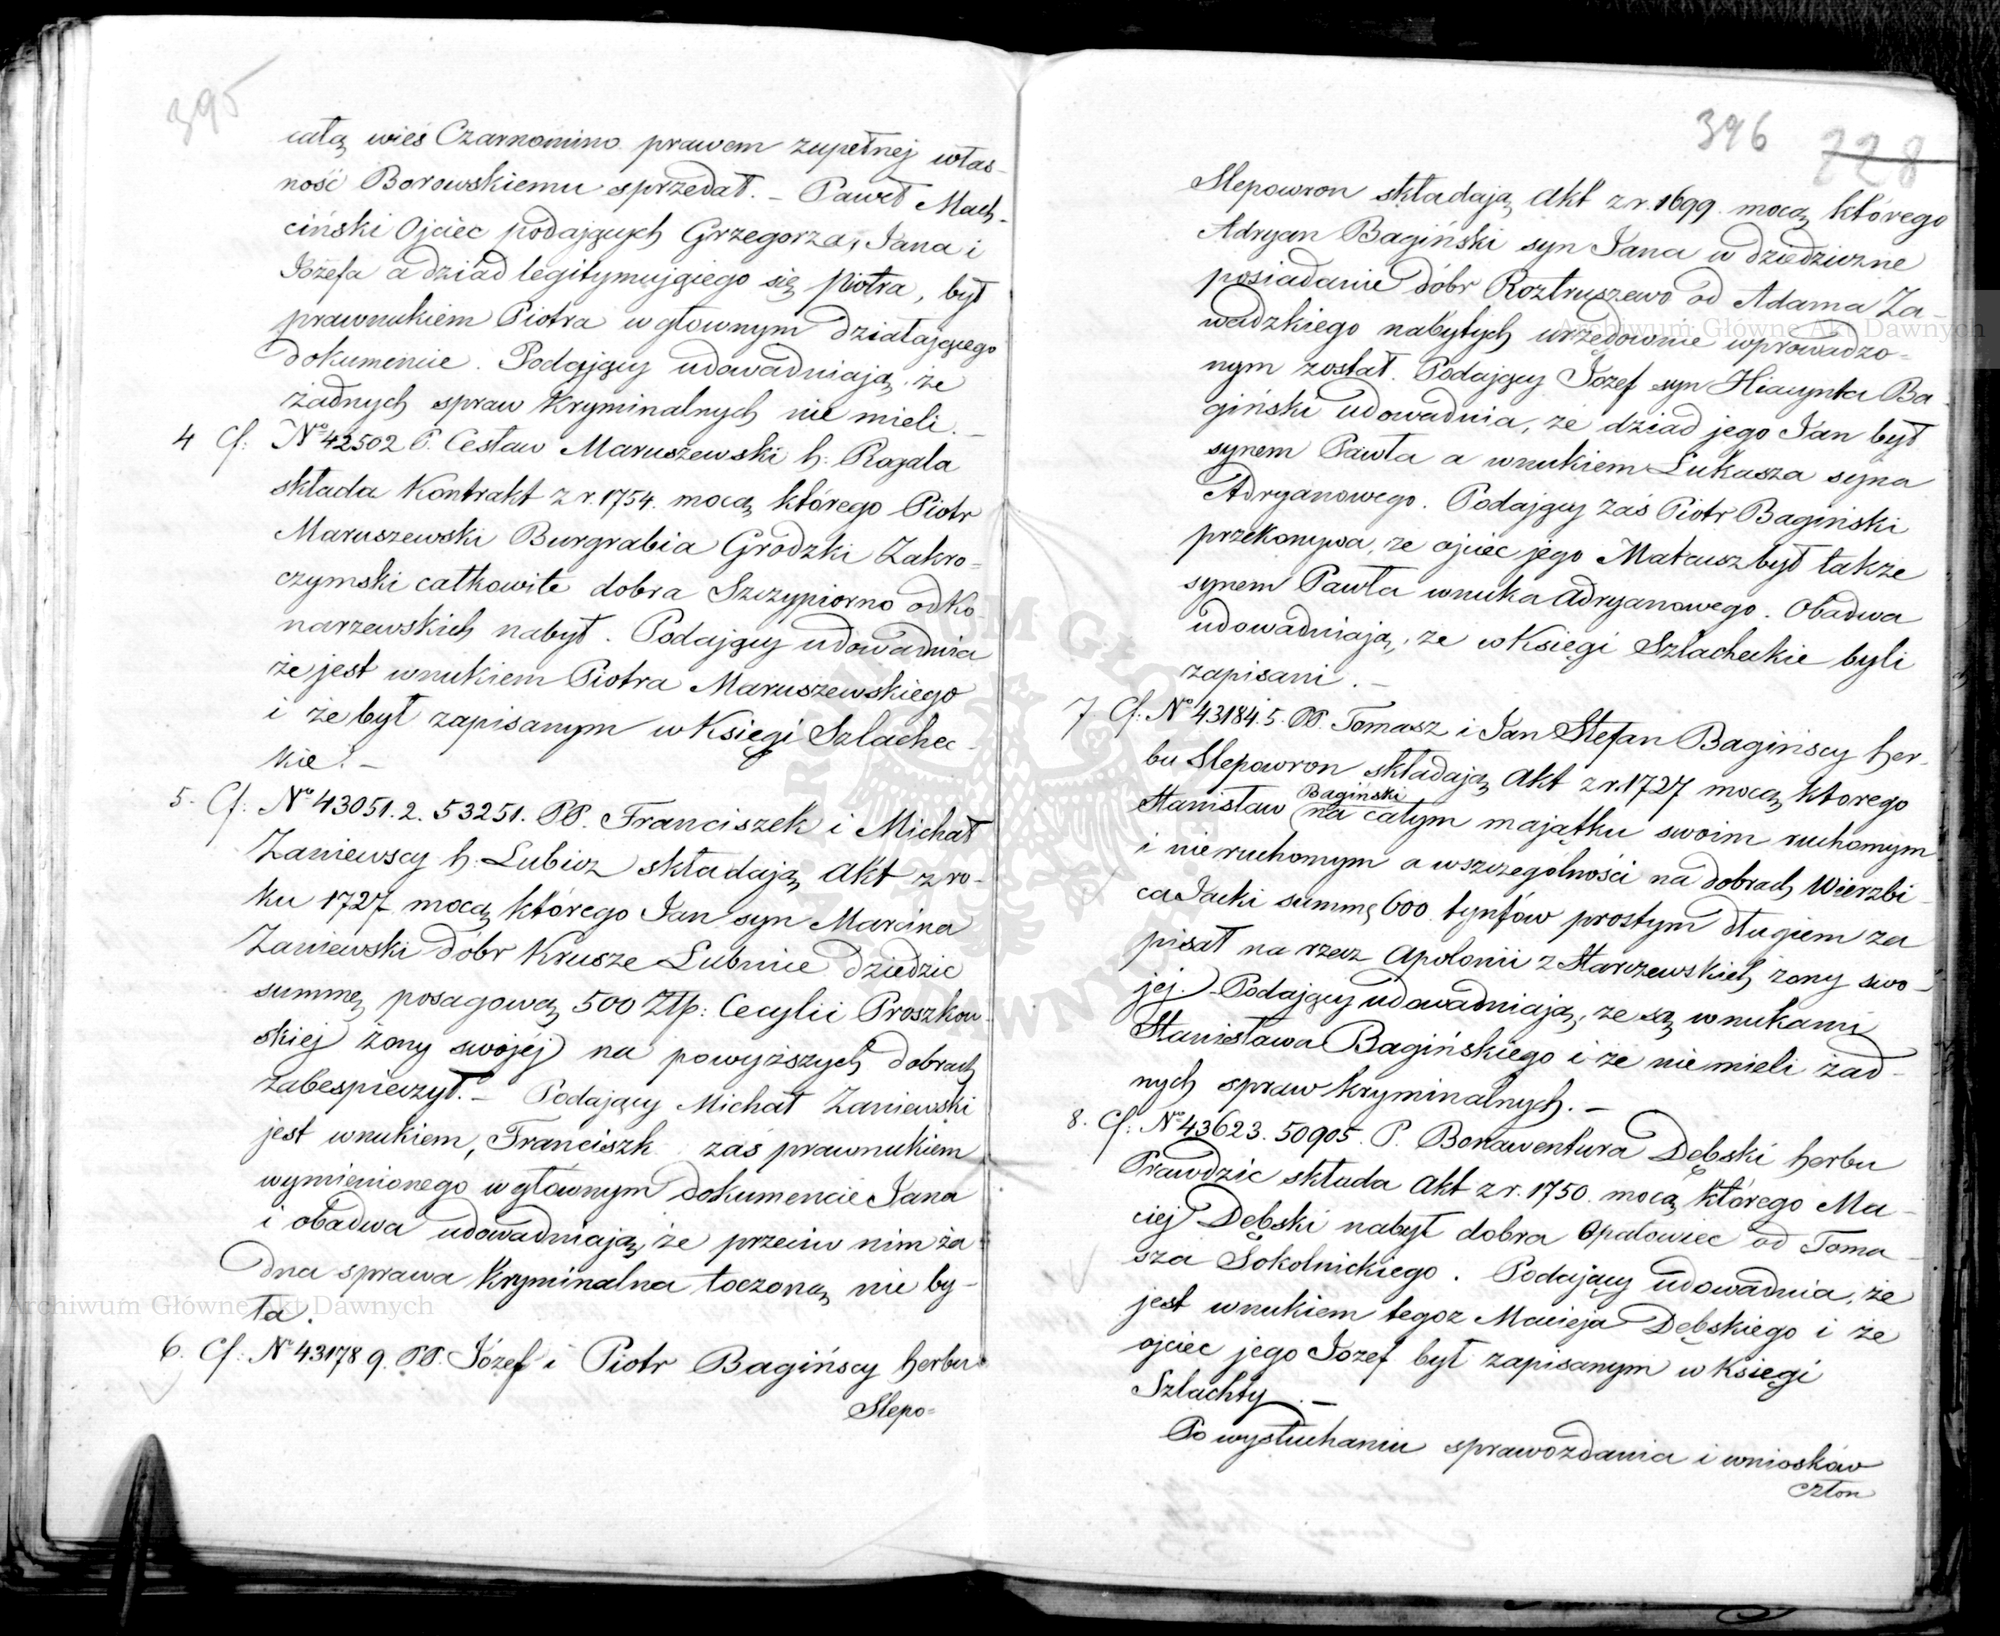 395
całą wieś Czarnomino prawem zupełnej włas-
ność Borowskiemu sprzedał. – Paweł Mach-
ciński Ojciec podających Grzegorza, Jana i
Józefa a dziad legitymującego się Piotra, był
prawnukiem Piotra w głownym działającego
dokumencie. Podający udowadniają, że
żadnych spraw kryminalnych nie mieli. –
4 Cf: Nº 42502 P. Cesław Maruszewski h: Rogala
składa Kontrakt z r. 1754. mocą którego Piotr
Maruszewski Burgrabia Grodzki Zakro=
czymski całkowite dobra Szczypiorno od Ko-
narzewskich nabył. Podający udowadnia
że jest wnukiem Piotra Maruszewskiego
i że był zapisanym w Księgi Szlachec-
kie. –
5. Cf: Nº 43051.2. 53251. PP. Franciszek i Michał
Zaniewscy h: Lubicz składają Akt z ro-
ku 1727 mocą którego Jan syn Marcina
Zaniewski dóbr Krusze Łubnice dziedzic
summę posagową 500 Złp: Cecylii Proszkow-
skiej żony swojej na powyższych dobrach
zabespieczył. – Podający Michał Zaniewski
jest wnukiem, Franciszk zaś prawnukiem
wymienionego w głownym dokumencie Jana
i obadwa udowadniają, że przeciw nim ża
dna sprawa kryminalna toczoną nie by-
ła.
6. Cf: Nº 43178 9. PP. Józef i Piotr Bagińscy herbu
Slepo=
396 228
Slepowron składają Akt z r. 1699. mocą którego
Adryan Bagiński syn Jana w dziedziczne
posiadanie dóbr Roztruszewo od Adama Za-
wadzkiego nabytych urzędownie wprowadzo=
nym został. Podający Józef syn Hiacynta Ba-
giński udowadnia, że dziad jego Jan był
synem Pawła a wnukiem Łukasza syna
Adryanowego. Podający zaś Piotr Bagiński
przekonywa, że ojciec jego Mateusz był także
synem Pawła wnuka Adryanowego. Obadwa
udowadniają, że w Księgi Szlacheckie byli
zapisani. –
7. Cf: Nº 43184.5. PP. Tomasz i Jan Stefan Bagińscy her-
bu Slepowron składają Akt z r. 1727 mocą ktorego
Bagiński
Stanisław na całym majątku swoim ruchomym
i nieruchomym a w szczególności na dobrach Wierzbi-
ca Jacki summę 600 tynfów prostym długiem za
pisał na rzecz Apolonii z Starczewskich żony swo-
jej. Podający udowadniają, że są wnukami
Stanisława Bagińskiego i że nie mieli żad-
nych spraw kryminalnych. –
8. Cf: Nº 43623. 50905. P. Bonawentura Dębski herbu
Prawdzic składa Akt z r. 1750. mocą którego Ma-
ciej Dębski nabył dobra Opatowiec od Toma-
sza Sokolnickiego. Podający udowadnia, że
jest wnukiem tegoz Macieja Dębskiego i że
ojciec jego Józef był zapisanym w Księgi
Szlachty. –
Po wysłuchaniu sprawozdania i wniosków
Człon
Archiwum Główne Akt Dawnych
Archiwum Główne Akt Dawnych